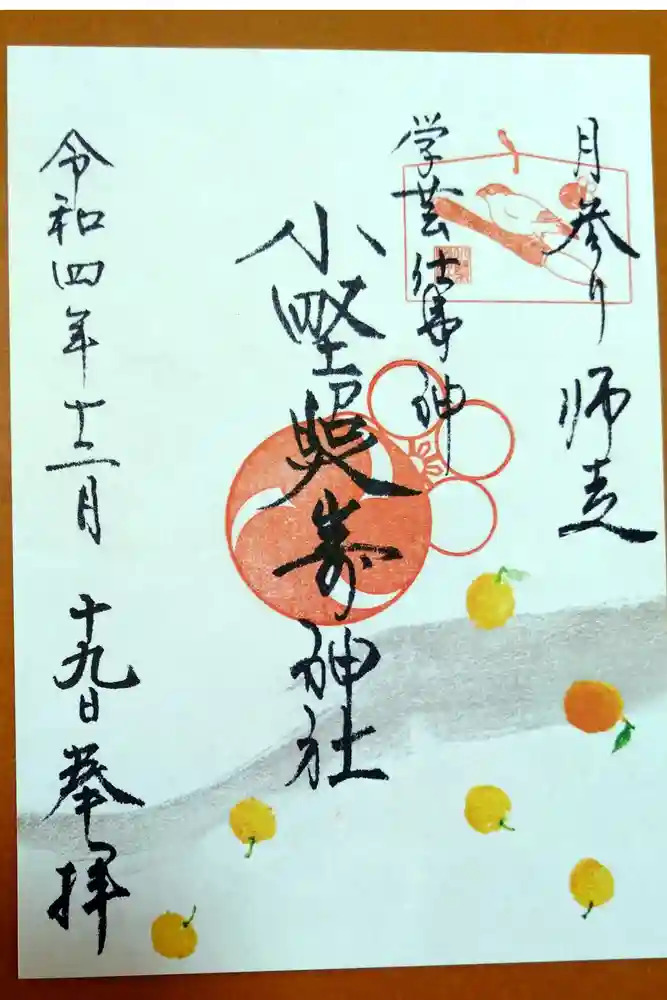 月参り 師走
学芸仕事神
小野照崎神社
令和四年十二月 十九日 奉拝